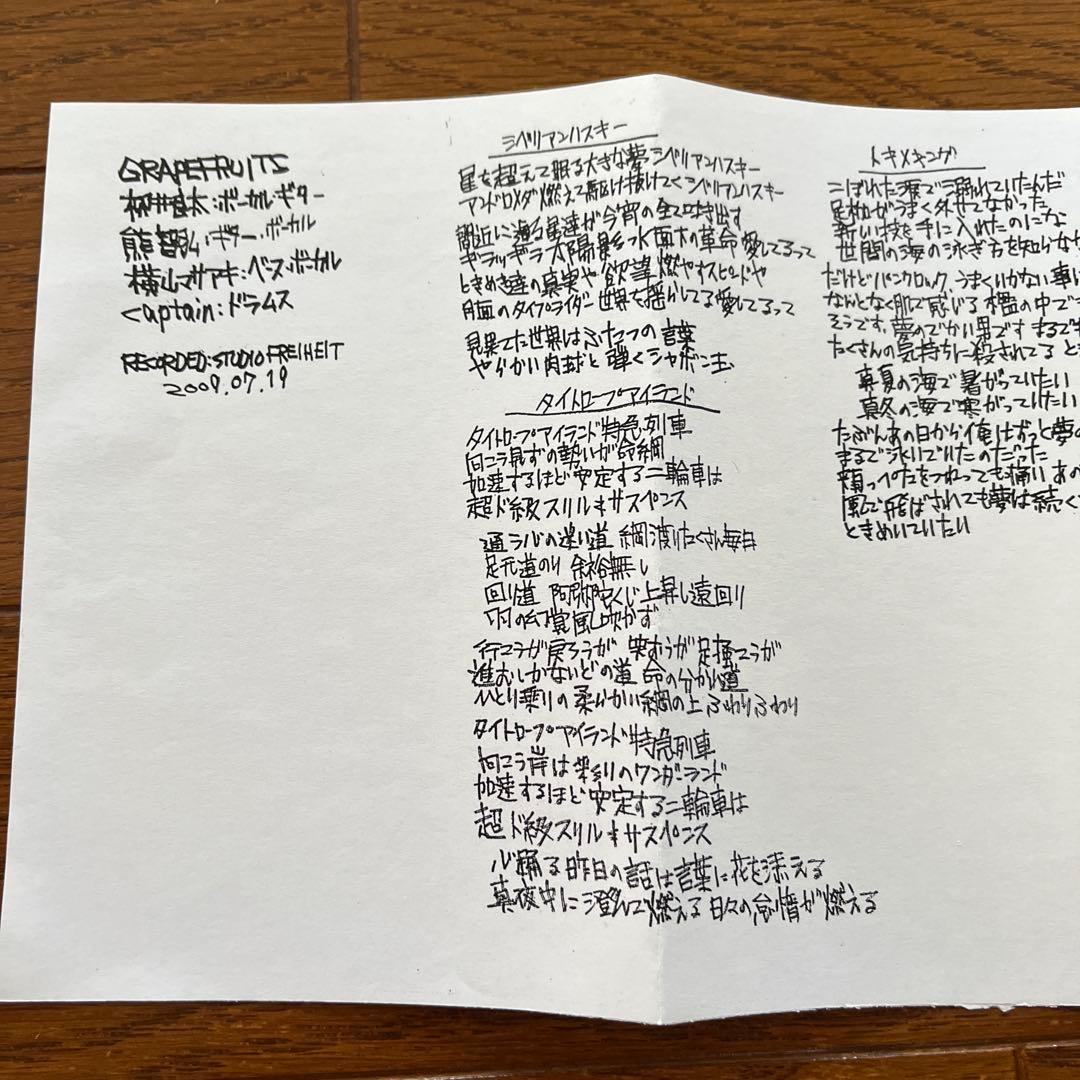 GRAPEFRUITS
柳井良太:ボーカル・ギター
熊智弘:ギター・ボーカル
横山マサアキ:ベース・ボーカル
captain:ドラムス
RECORDED:STUDIO FREIHEIT
2009.07.19
シベリアンハスキー
星を超えて眠る大きな夢 シベリアンハスキー
アンドロメダ燃えて駆け抜けてく シベリアンハスキー
間近に迫る星達が今宵の全て吐き出す
ギラッギラ太陽 影 水面下の革命 愛してるって
ときめき達の真実や 欲望燃やすスピードや
月面のタイプライター 世界を揺らしてる愛してるって
見果てた世界はふたつの言葉
やらかい肉球と弾くシャボン玉
タイトロープアイランド
タイトロープアイランド特急列車
向こう見ずの勢いが命綱
加速するほど安定する二輪車は
超ド級スリル&サスペンス
通う心の迷い道 綱渡りたくさん毎日
足元道のり 余裕無し
回り道 阿弥陀くじ 上昇し遠回り
幻覚 風吹かず
行こうが戻ろうが 笑おうが足掻こうが
進むしかないどの道 命の分かれ道
ひとり乗りの柔らかい綱の上 ふわりふわり
タイトロープアイランド特急列車
向こう岸は彩りのワンダーランド
加速するほど安定する二輪車は
超ド級スリル&サスペンス
心踊る昨日の話は言葉に花を添える
真夜中に澄んで燃える 日々の怠惰が燃える
トキメキング
こぼれた涙で溺れていたんだ
足枷がうまく外せてなかった
新しい技を手に入れたのにな
世間の海の泳ぎ方を知らなか
だけどパンクロック うまくいかない事に
なんとなく肌で感じる 檻の中で
そうです、夢のでかい男です まるで
たくさんの気持ちに殺されてる と
真夏の海で暑がっていたい
真冬の海で寒がっていたい
たぶんあの日から俺はずっと夢の
まるで泳いでいたのだった
頬っぺたをつねっても痛い あの
風で飛ばされても夢は続く
ときめいていたい